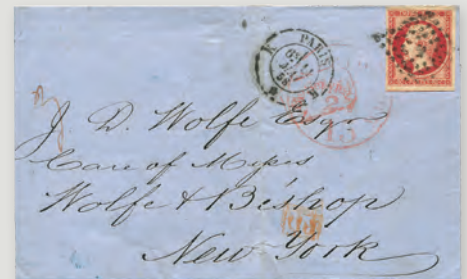 PARIS
J. D. Wolfe Esqr
Care of Messrs
Wolfe & Bishop
New York